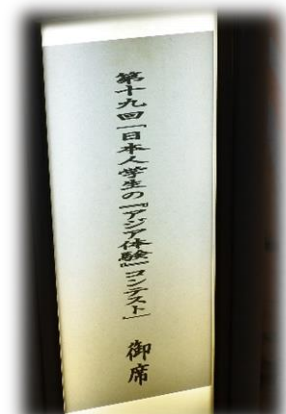 第十九回「日本人学生の『アジア体験』コンテスト」 御席